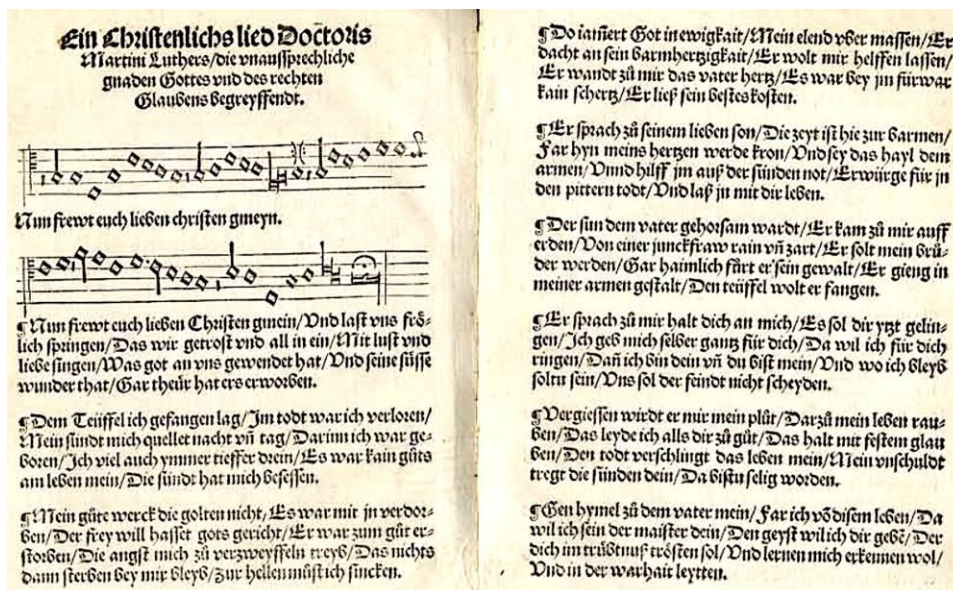 Ein Christenlichs lied Doctoris
Martini Luthers/die vnaussprechliche
gnaden Gottes vnd des rechten
Glaubens begreyffendt.
Nun frewt euch lieben christen gmeyn.
¶Nun frewt euch lieben Christen gmein/Vnd last vns frö-
lich springen/Das wir getrost vnd all in ein/Mit lust vnd
liebe singen/Was got an vns gewendet hat/Vnd seine süsse
wunder that/Gar theür hat ers erworben.
¶Dem Teüffel ich gefangen lag/Im todt war ich verloren/
Mein sündt mich quellet nacht vñ tag/Darinn ich war ge-
boren/Ich viel auch ymmer tieffer drein/Es war kain gůts
am leben mein/Die sündt hat mich besessen.
¶Mein gůte werck die golten nicht/Es war mit jn verdor-
ben/Der frey will hasset gots gericht/Er war zum gůt er-
storben/Die angst mich zů verzweyffeln treyb/Das nichts
dann sterben bey mir bleyb/Zur hellen můst ich sincken.
¶Do iamert Got in ewigkait/Mein elend vber massen/Er
dacht an sein barmhertzigkait/Er wolt mir helffen lassen/
Er wandt zů mir das vater hertz/Es war bey jm fürwar
kain schertz/Er ließ sein bestes kosten.
¶Er sprach zů seinem lieben son/Die zeyt ist hie zur barmen/
Far hyn meins hertzen werde kron/Vnd sey das hayl dem
armen/Vnnd hilff jm auß der sünden not/Erwürge für jn
den pittern todt/Vnd laß jn mit dir leben.
¶Der sun dem vater gehorsam wardt/Er kam zů mir auff
erden/Von einer junckfraw rain vñ zart/Er solt mein brů-
der werden/Gar haimlich fůrt er sein gewalt/Er gieng in
meiner armen gestalt/Den teüffel wolt er fangen.
¶Er sprach zů mir halt dich an mich/Es sol dir ytzt gelin-
gen/Ich geb mich selber gantz für dich/Da wil ich für dich
ringen/Dañ ich bin dein vñ du bist mein/Vnd wo ich bleyb
soltu sein/Vns sol der feindt nicht scheyden.
¶Vergiessen wirdt er mir mein plůt/Darzů mein leben rau-
ben/Das leyde ich alls dir zů gůt/Das halt mit festem glau
ben/Den todt verschlingt das leben mein/Mein vnschuldt
tregt die sünden dein/Da bistu selig worden.
¶Gen hymel zů dem vater mein/Far ich võ disem leben/Da
wil ich sein der maister dein/Den geyst wil ich dir gebē/Der
dich im trübtnuß trösten sol/Vnd lernen mich erkennen wol/
Vnd in der warhait leytten.